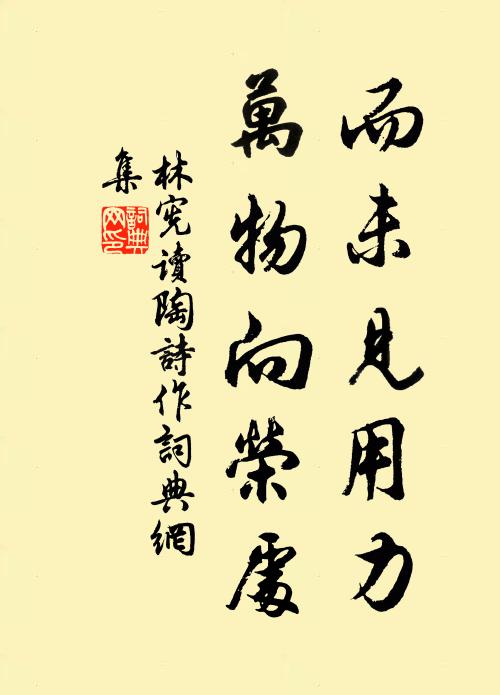 而未見用力
萬物向榮處
林宪讀陶詩作詞典網
集
詞典
网印